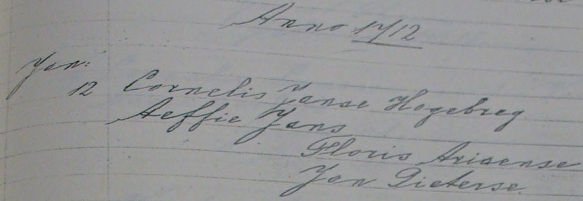 Anno 1712
Jan:
12 Cornelis Janse Hogebreg
Aeffie Jans
Floris Arisense
Jan Pieterse